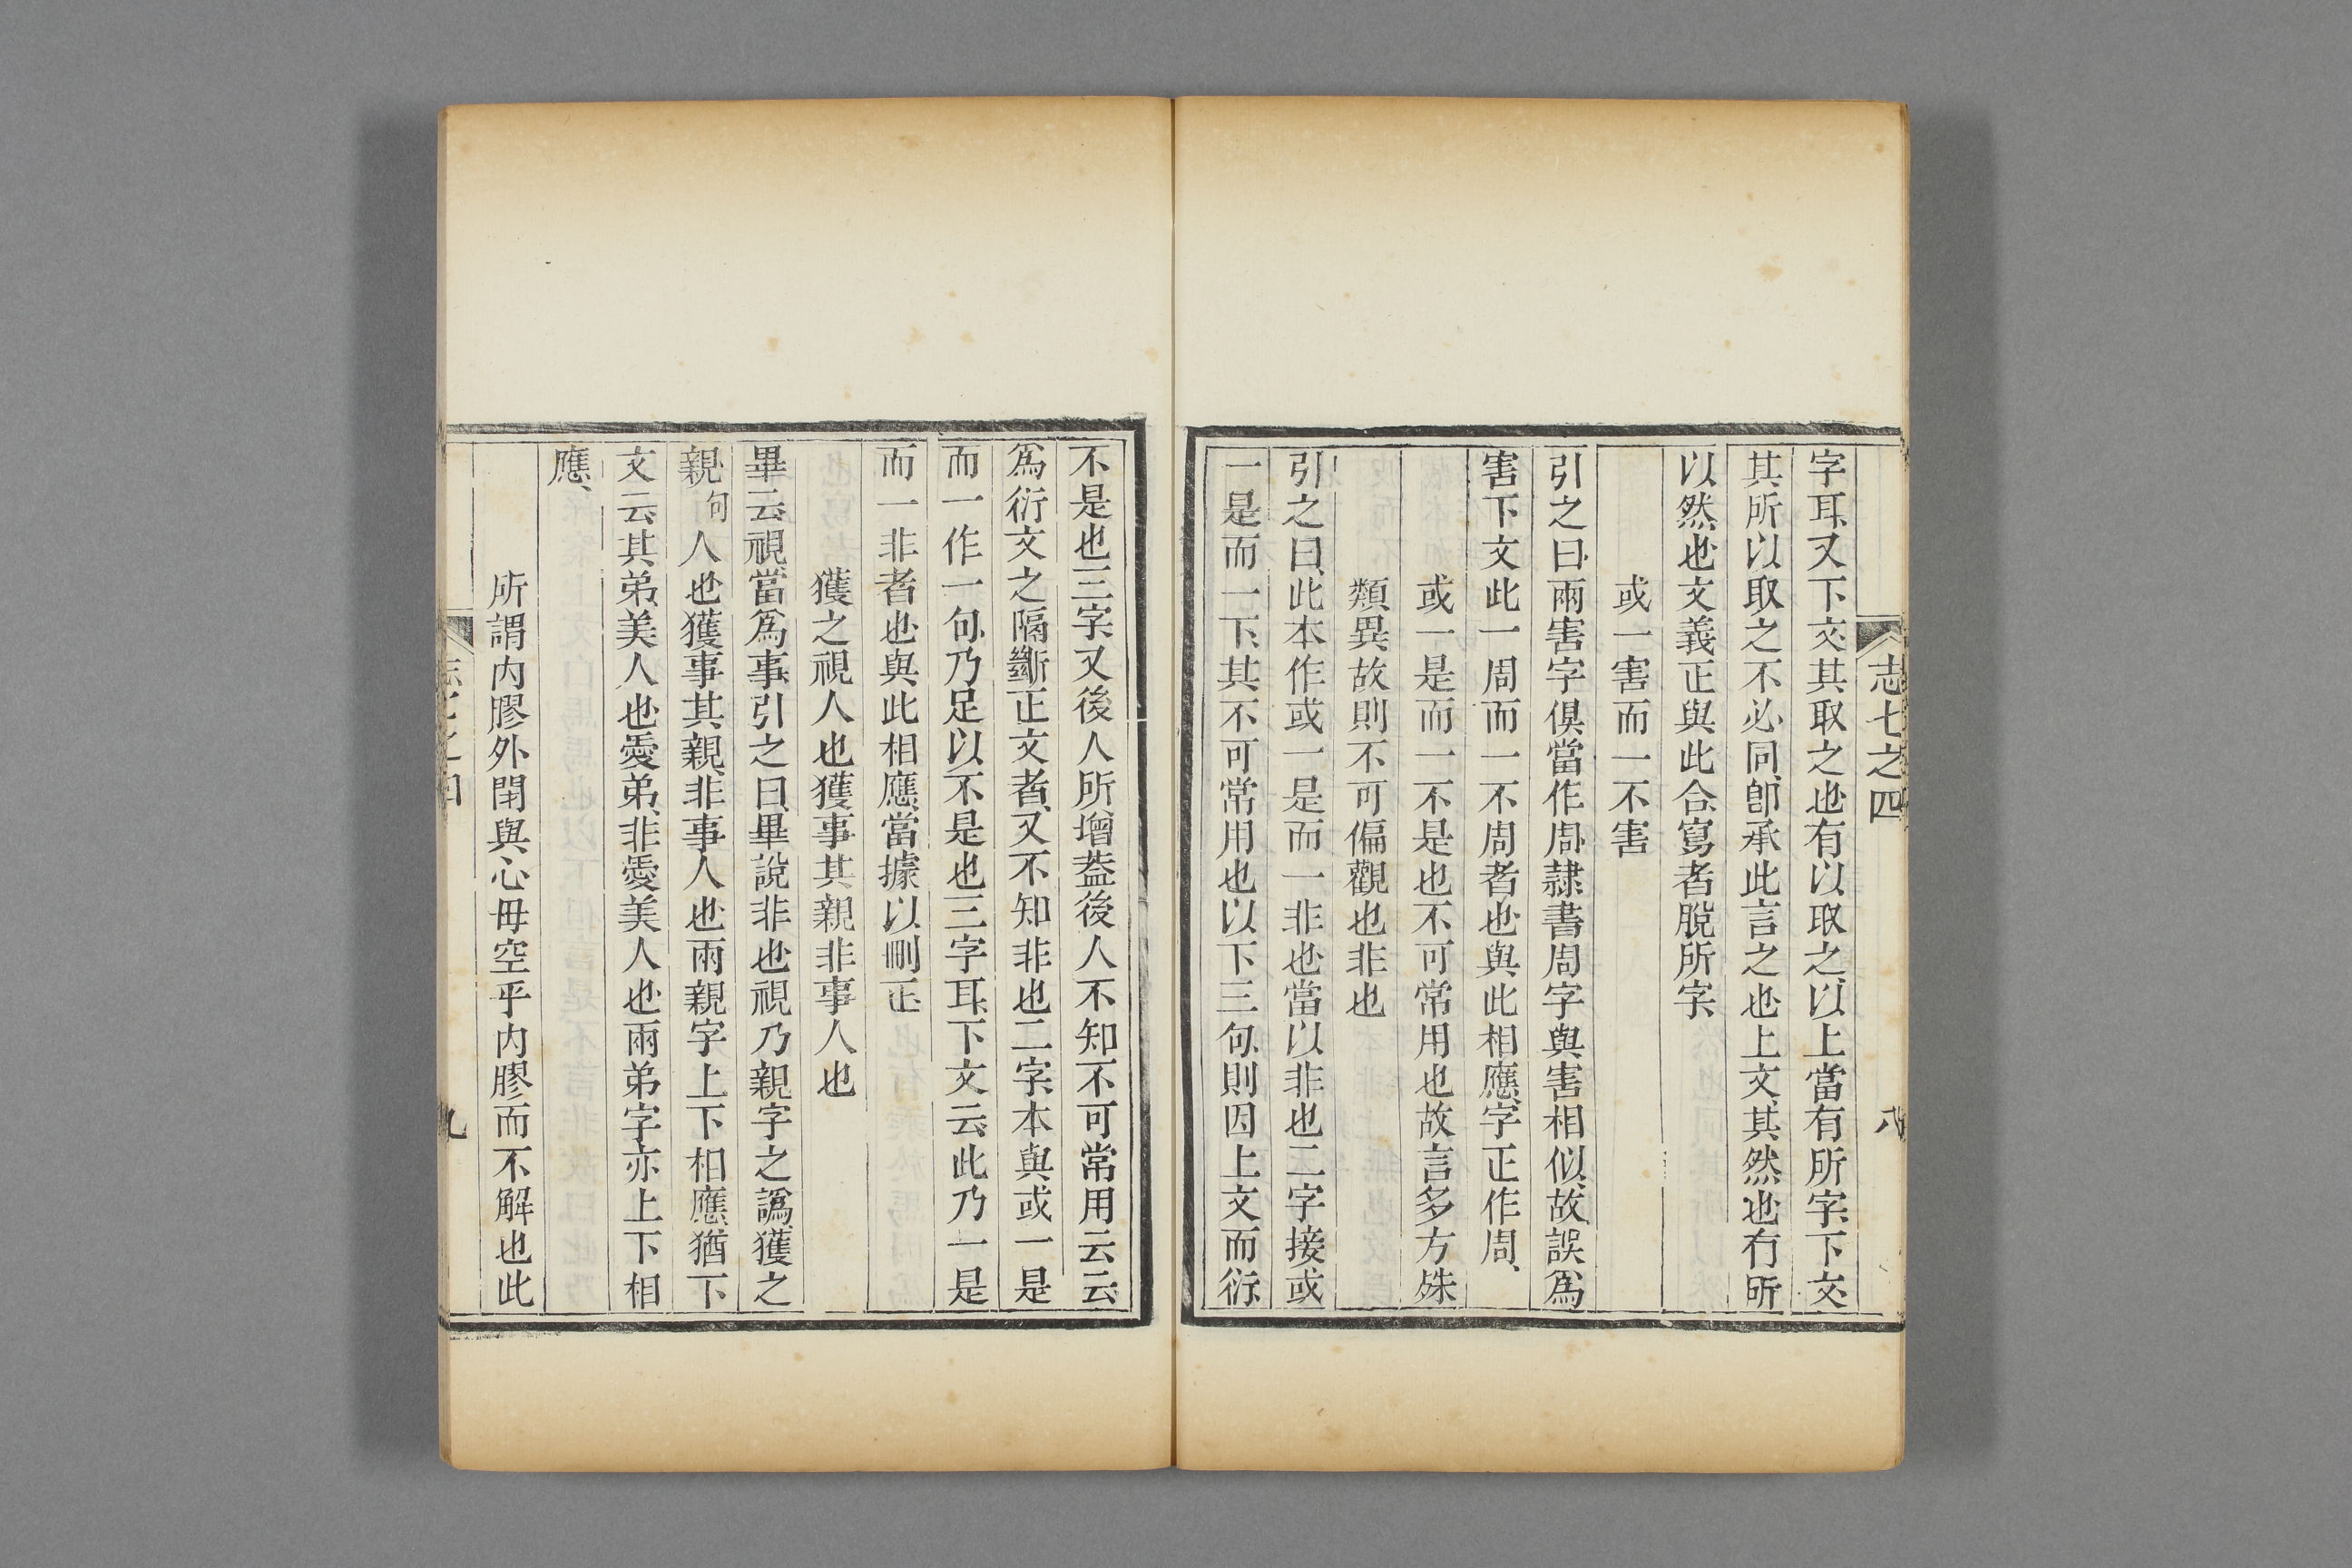 志七之四
八
字耳又下文其取之也有以取之以上當有所字下文
其所以取之不必同卽承此言之也上文其然也有所
以然也文義正與此合寫者脫所字
或一害而一不害
引之曰兩害字俱當作周隷書周字與害相似故誤爲
害下文此一周而一不周者也與此相應字正作周
或一是而一不是也不可常用也故言多方殊
類異故則不可偏觀也非也
引之曰此本作或一是而一非也當以非也二字接或
一是而一下其不可常用也以下三句則因上文而衍
不是也三字又後人所增葢後人不知不可常用云云
爲衍文之隔斷正文者又不知非也二字本與或一是
而一作一句乃足以不是也三字耳下文云此乃一是
而一非者也與此相應當據以刪正
獲之視人也獲事其親非事人也
畢云視當爲事引之曰畢說非也視乃親字之譌獲之
親句人也獲事其親非事人也兩親字上下相應猶下
文云其弟美人也愛弟非愛美人也兩弟字亦上下相
應
所謂内膠外閉與心毋空乎内膠而不解也此
志七之四
九